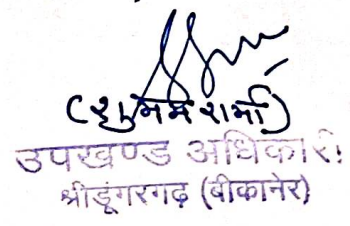 (शुभम शर्मा)
उपखण्ड अधिकारी
श्रीडूंगरगढ़ (बीकानेर)